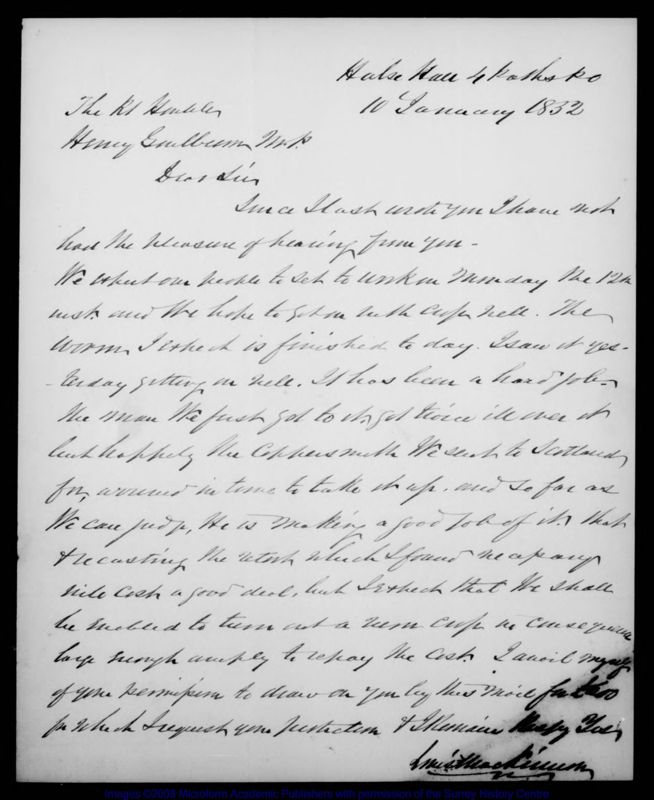 Hulse Hall
10 January 1832
The Rt Honble
Henry Goulburn M.P.
Dear Sir
Since I last wrote you I have not
had the pleasure of hearing from you -
We expect our people to set to work on Thursday the 12th
inst. and We hope to get on with Crop well. The
worm I expect is finished to day. I saw it yes-
-terday getting on well. It has been a hard job
the man We first got to it, got twice ill over it
but happily the Coppersmith We sent to Scotland
for, arrived in time to take it up. and so far as
We can judge, He is making a good job of it. that
& recasting the which I found necessary
will cost a good deal, but I expect that We shall
be enabled to turn out a rum crop in consequence
large enough amply to repay the Cost. I avail myself
of your permission to draw on you by this Mail for
for which I request your protection & I Remain
Images ©2008 Microform Academic Publishers with permission of the Surrey History Centre